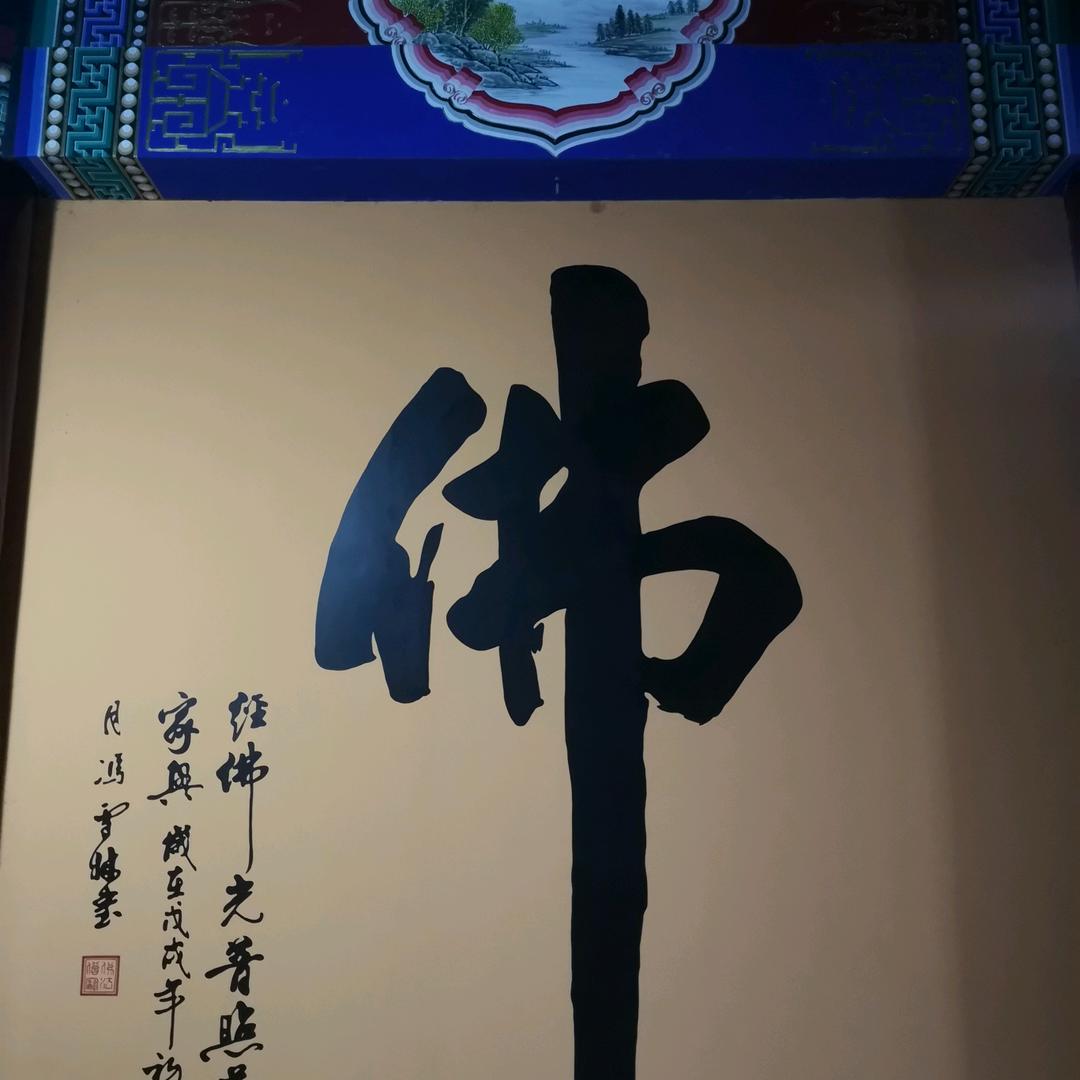 佛
经佛光普照
家兴 岁在戊戌年
月冯雪林书